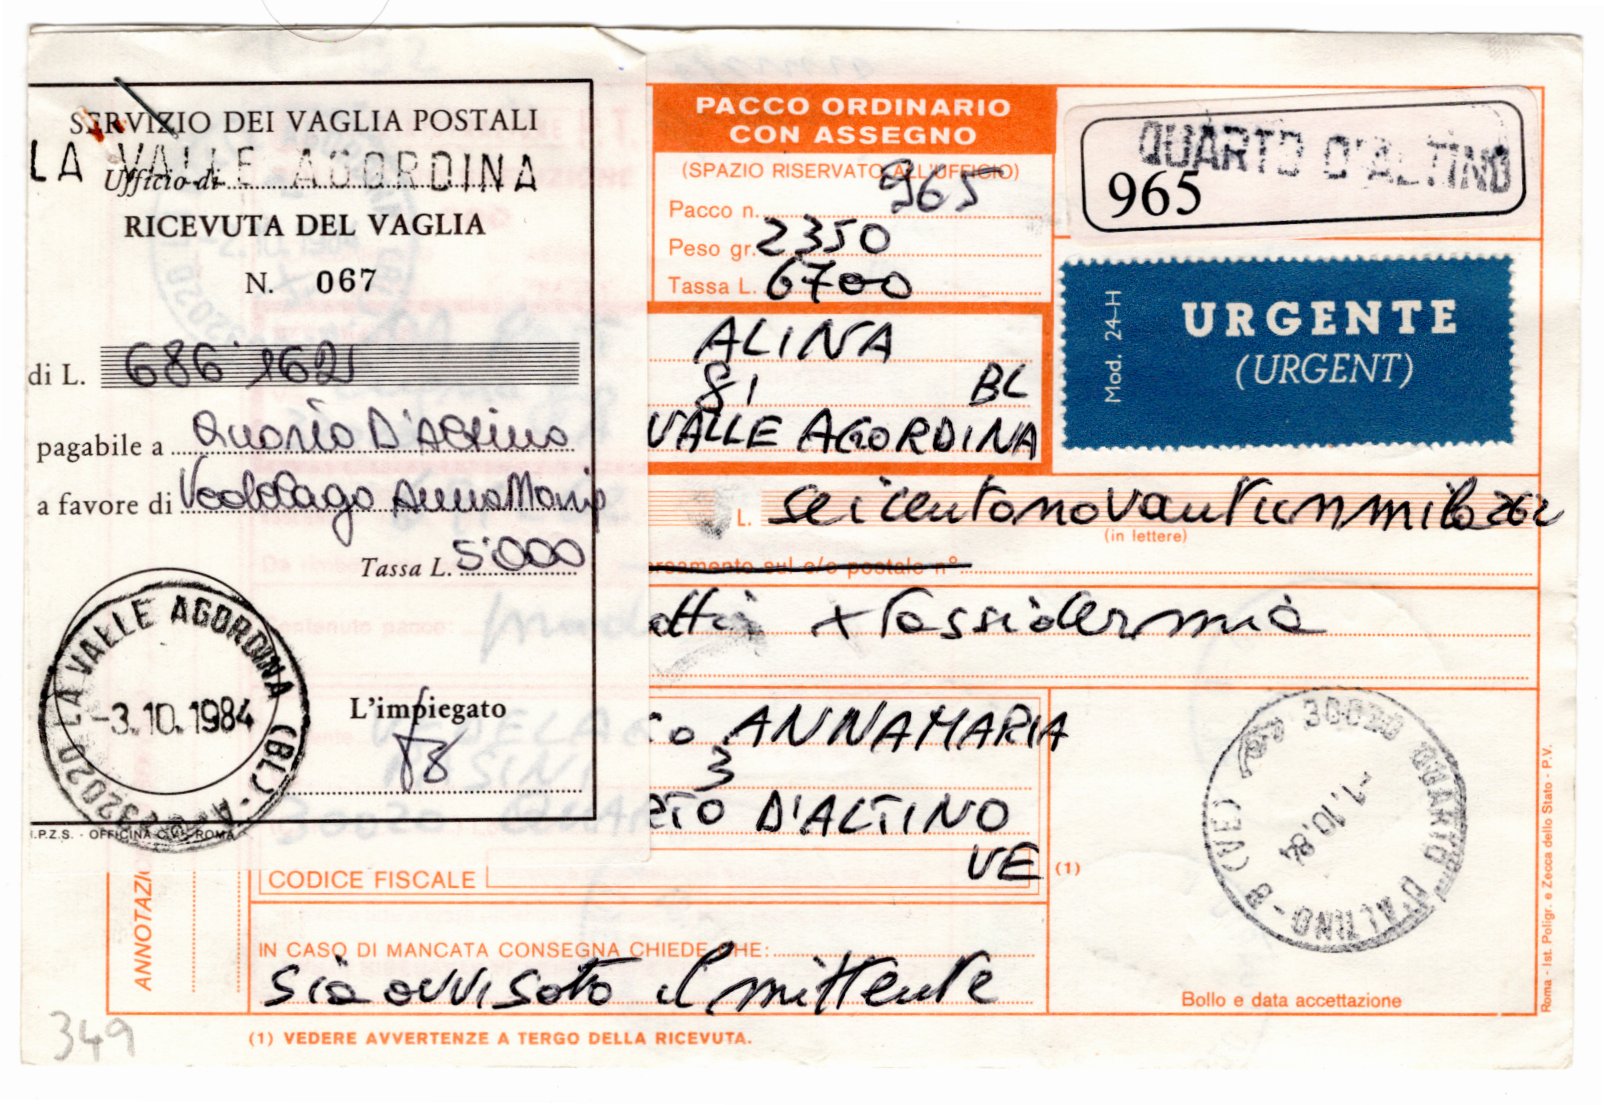 SERVIZIO DEI VAGLIA POSTALI
LA VALLE AGORDINA
Ufficio di
RICEVUTA DEL VAGLIA
N. 067
di L. 686'162
pagabile a Quarto D'Altino
a favore di Vedelago Anna Maria
Tassa L. 5.000
LA VALLE AGORDINA (BL) - A
32020
-3.10.1984
L'impiegato
I.P.Z.S. - OFFICINA C.V. - ROMA
PACCO ORDINARIO
CON ASSEGNO
(SPAZIO RISERVATO ALL'UFFICIO)
Pacco n. 965
Peso gr. 2350
Tassa L. 6700
QUARTO D'ALTINO
965
Mod. 24-H
URGENTE
(URGENT)
ALINA
81 BL
VALLE AGORDINA
L. seicentonovantunmila262
(in lettere)
ersamento sul c/c postale n°
Contenuto pacco:
atti x Tassidermia
ANNAMARIA
3
RTO D'ALTINO
VE
CODICE FISCALE
(1)
30020 QUARTO D'ALTINO - B (VE)
-1.10.84
Bollo e data accettazione
ANNOTAZI
IN CASO DI MANCATA CONSEGNA CHIEDE CHE:
sia avvisato il mittente
(1) VEDERE AVVERTENZE A TERGO DELLA RICEVUTA.
Roma - Ist. Poligr. e Zecca dello Stato - P.V.
349